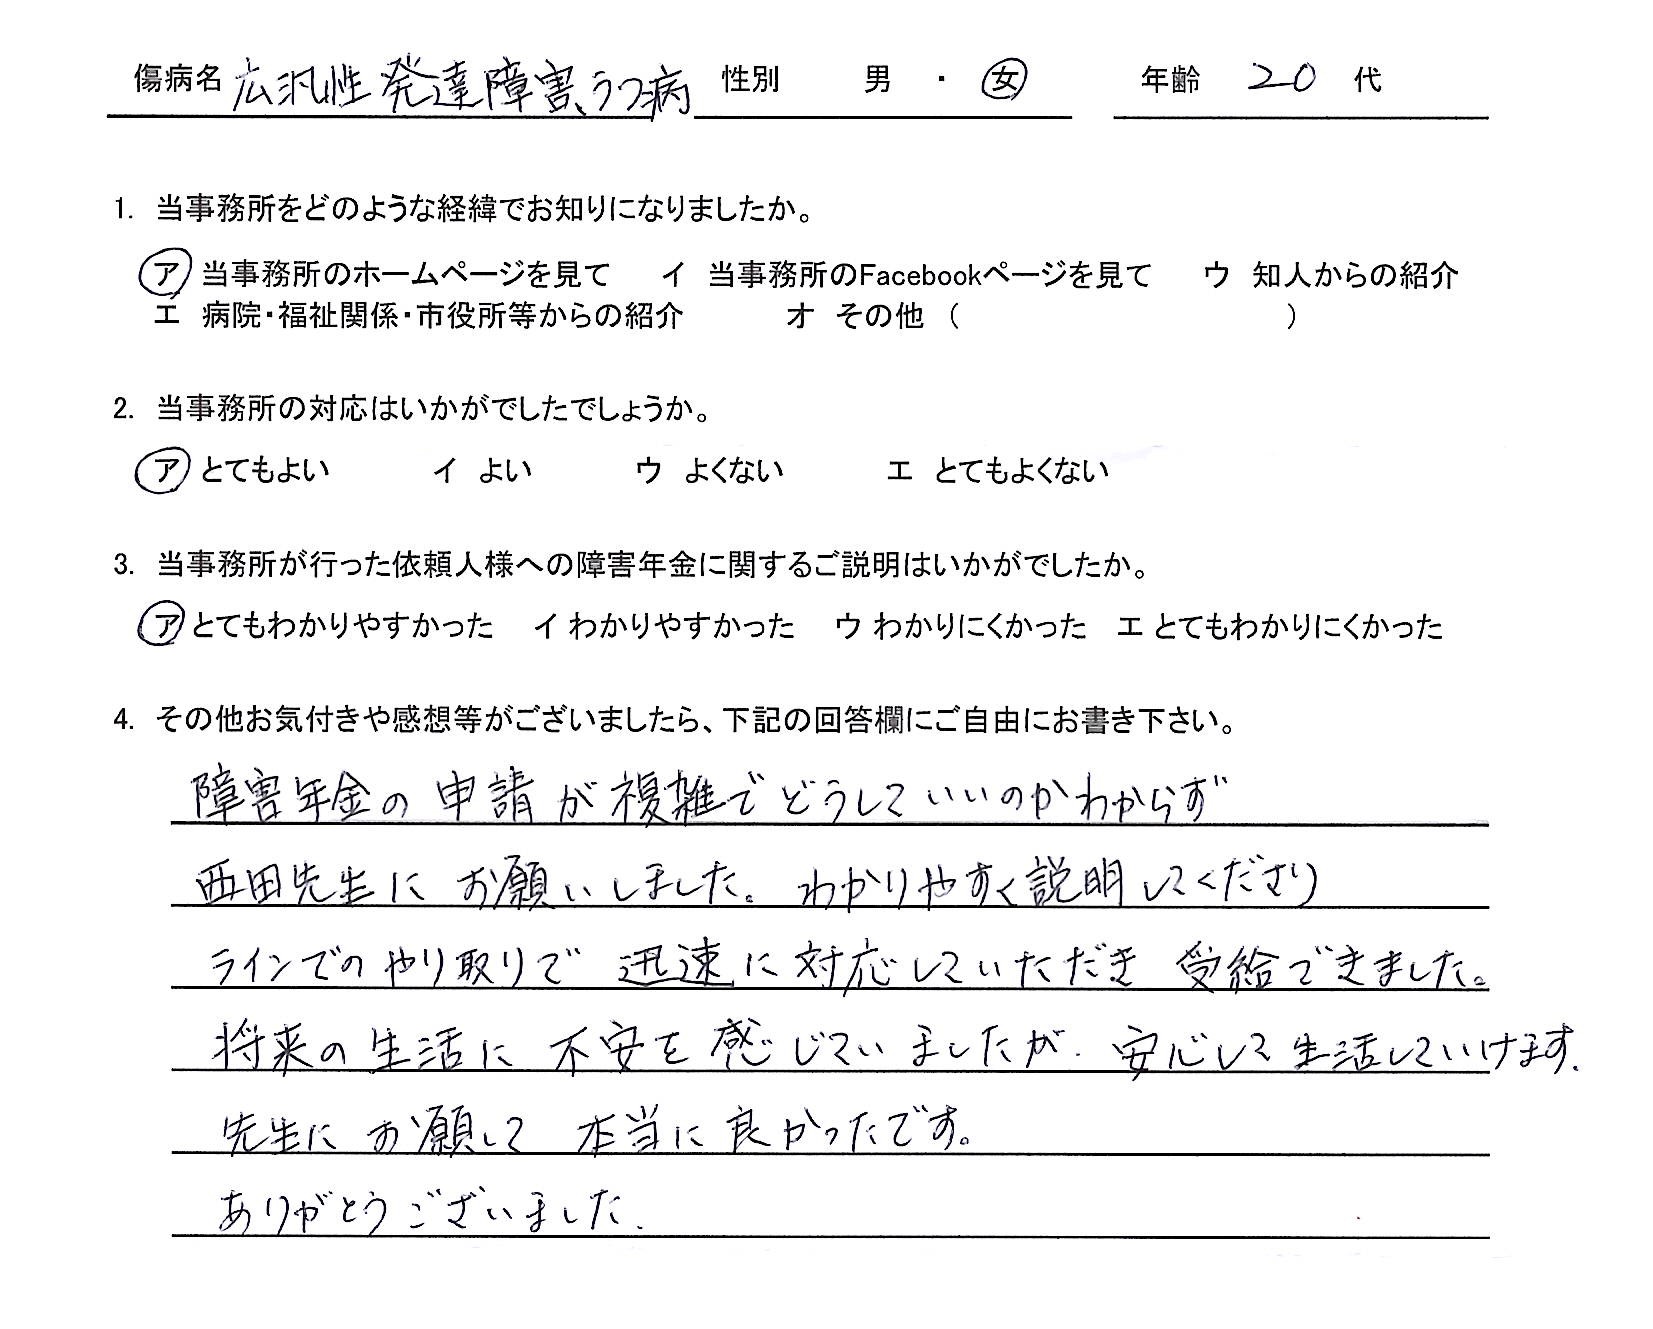 傷病名 広汎性発達障害、うつ病 性別 男 ・ 女 年齢 20 代
1. 当事務所をどのような経緯でお知りになりましたか。
ア 当事務所のホームページを見て イ 当事務所のFacebookページを見て ウ 知人からの紹介
エ 病院・福祉関係・市役所等からの紹介 オ その他 ( )
2. 当事務所の対応はいかがでしたでしょうか。
ア とてもよい イ よい ウ よくない エ とてもよくない
3. 当事務所が行った依頼人様への障害年金に関するご説明はいかがでしたか。
ア とてもわかりやすかった イ わかりやすかった ウ わかりにくかった エ とてもわかりにくかった
4. その他お気付きや感想等がございましたら、下記の回答欄にご自由にお書き下さい。
障害年金の申請が複雑でどうしていいのかわからず
西田先生にお願いしました。わかりやすく説明してくださり
ラインでのやり取りで迅速に対応していただき受給できました。
将来の生活に不安を感じていましたが、安心して生活していけます。
先生にお願して本当に良かったです。
ありがとうございました。